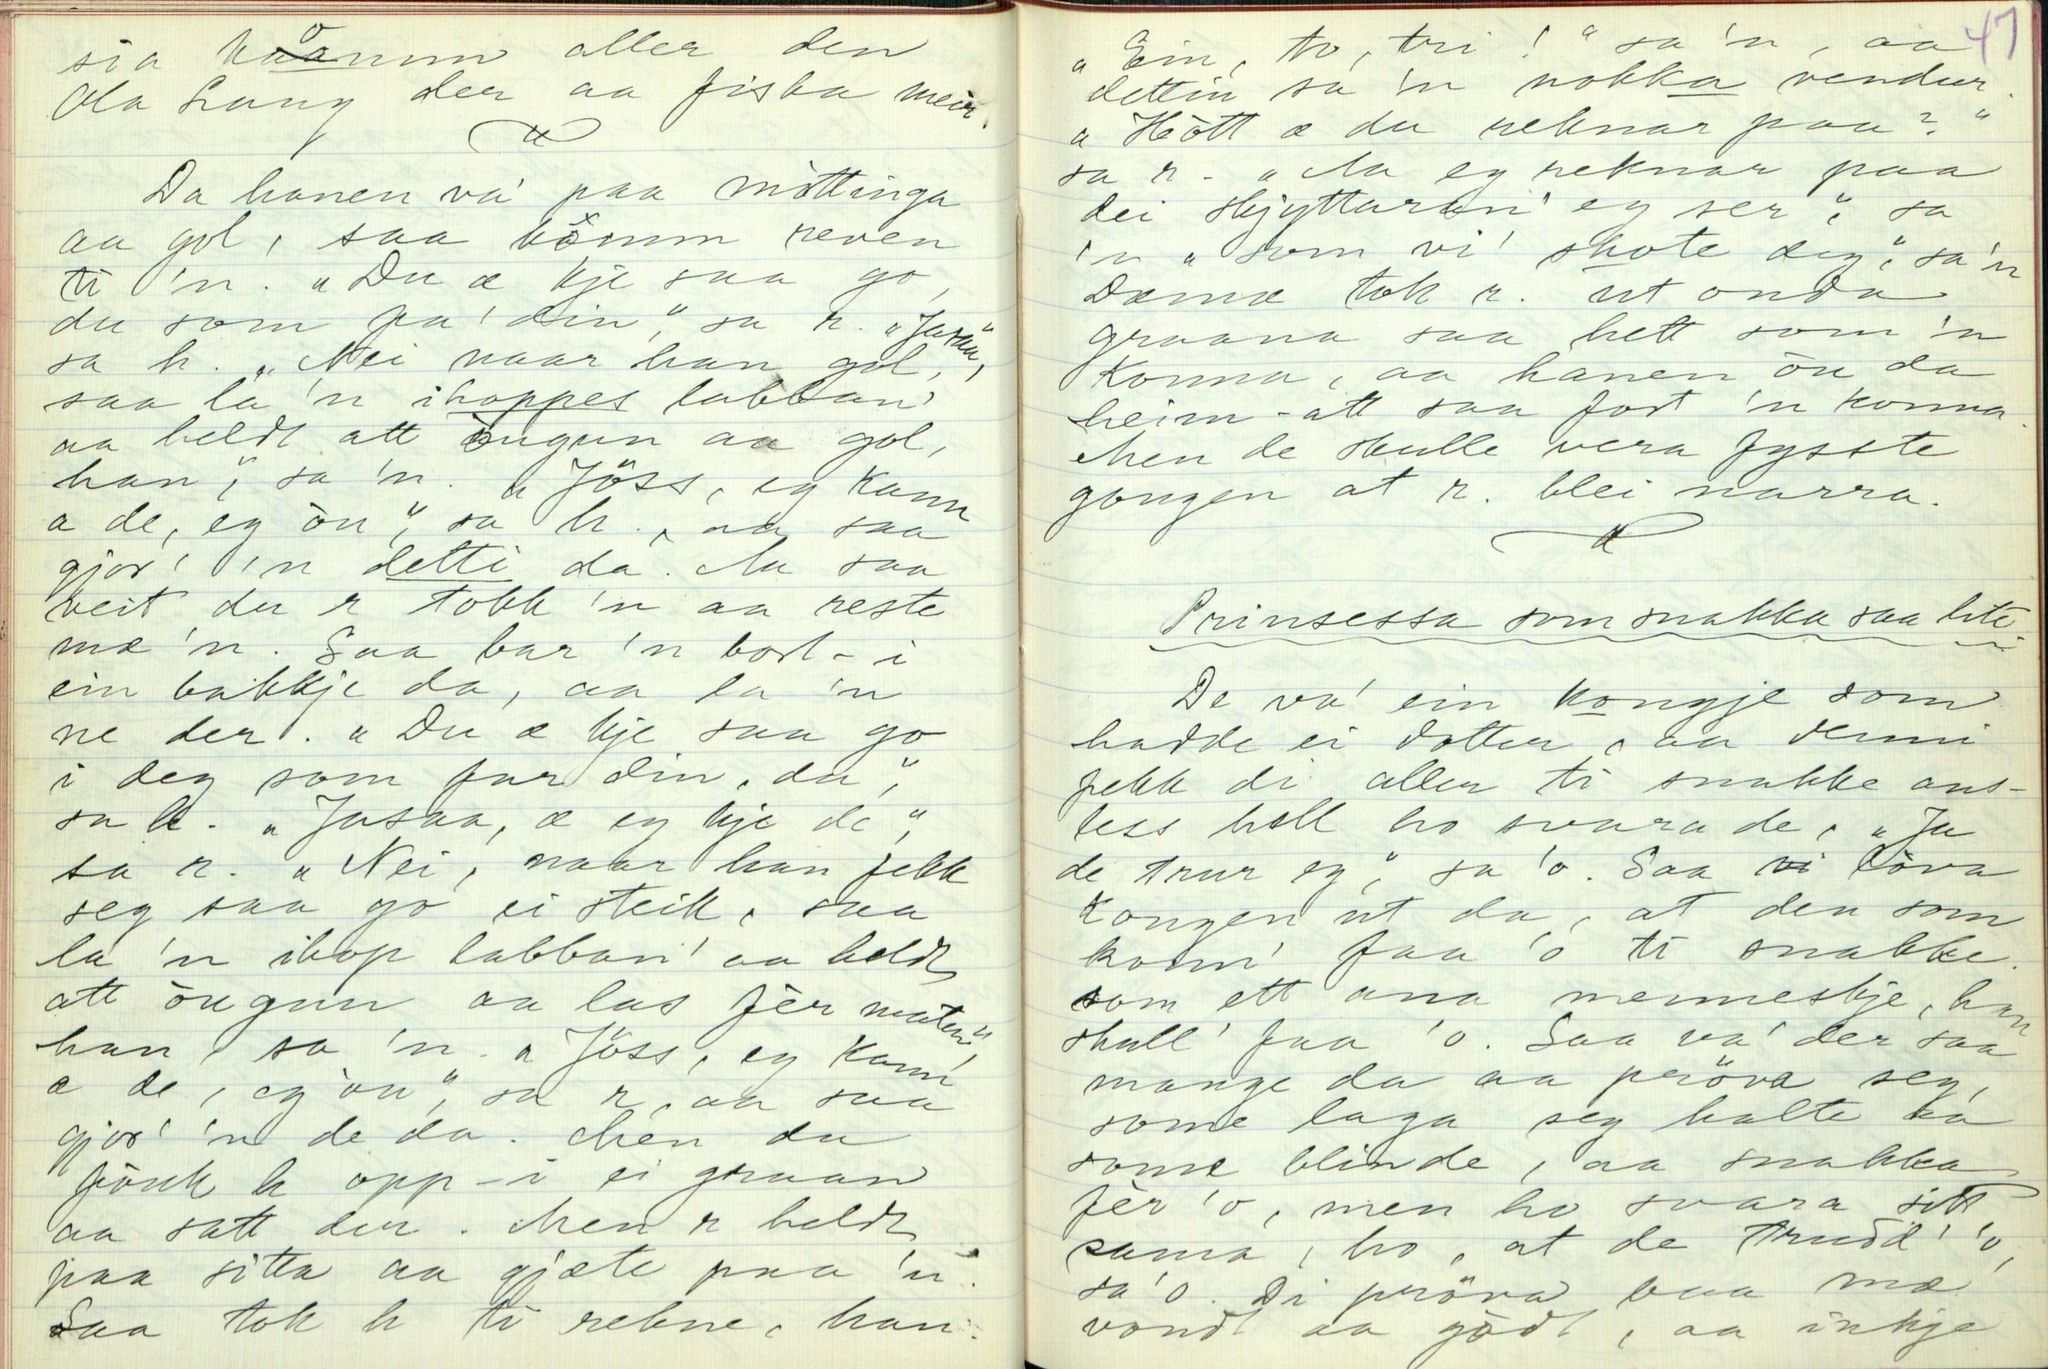 sia kåmm aller den
Ola Lang der aa fiska meir.
Da hanen va' paa möttinga
aa gol, saa kömm reven
ti 'n. „Du æ kje saa go,
du som fa' din," sa r. „Jasaa",
sa h. „Nei naar han gol,
saa la 'n ihoppes labban'
aa heldt att òugun aa gol,
han", sa 'n. „Jöss, eg kann
a de, eg òu", sa h., aa saa
gjor' 'n detti da. Aa saa
veit du r tokk 'n aa reste
mæ 'n. Saa bar 'n bort-i
ein bakkje da, aa la 'n
ne der. „Du æ kje saa go
i deg som far din, du",
sa h. „Jasaa, æ eg kje de",
sa r. „Nei, naar han fekk
seg saa go ei steik, saa
la 'n ihop labban' aa heldt
att òugun aa las fèr maten",
han, sa 'n. „Jöss, eg kann
a de, eg òu", sa r, aa saa
gjor' 'n de da. Men da
fòuk h opp-i ei graan
aa satt der. Men r heldt
paa sitta aa gjæte paa 'n.
Saa tok h ti rekne, han.
47
„Ein, to, tri!" sa 'n, aa
dettin sa 'n nokka vendur.
„Hòtt æ du reknar paa?"
sa r. „Aa eg reknar paa
dei skjyttaran' eg ser", sa
'n „som vi' skote deg", sa 'n
Dæmæ tok r. ut onda
graana saa hett som 'n
konna, aa hanen òu da
heim-att saa fort 'n konna.
Men de skulle vera fysste
gongen at r. blei narra.
Prinsessa som snakka saa lite
De va' ein kongje som
hadde ei dotter, aa denni
fekk di aller ti snakke ans-
less hell ho svara de, „Ja
de trur eg", sa 'o. Saa lòva
kongen ut da, at den som
konn' faa 'o ti snakke
som ett ana menneskje, han
skull' faa 'o. Saa va' der saa
mange da aa pröva seg,
some laga seg halte aa
some blinde, aa snakka
fèr 'o, men ho svara sitt
sama, ho, at de trudd' 'o,
sa 'o. Di pröva baa mæ
vondt aa gòdt, aa inkje